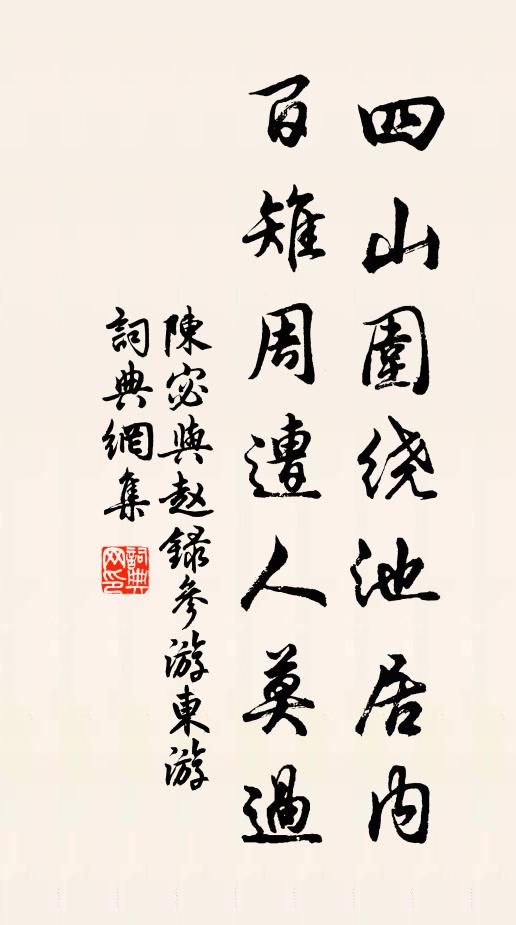 四山圍绕池居内
百雉周遭人莫過
陳宓與赵錄參游東游
詞典網集
詞典網印